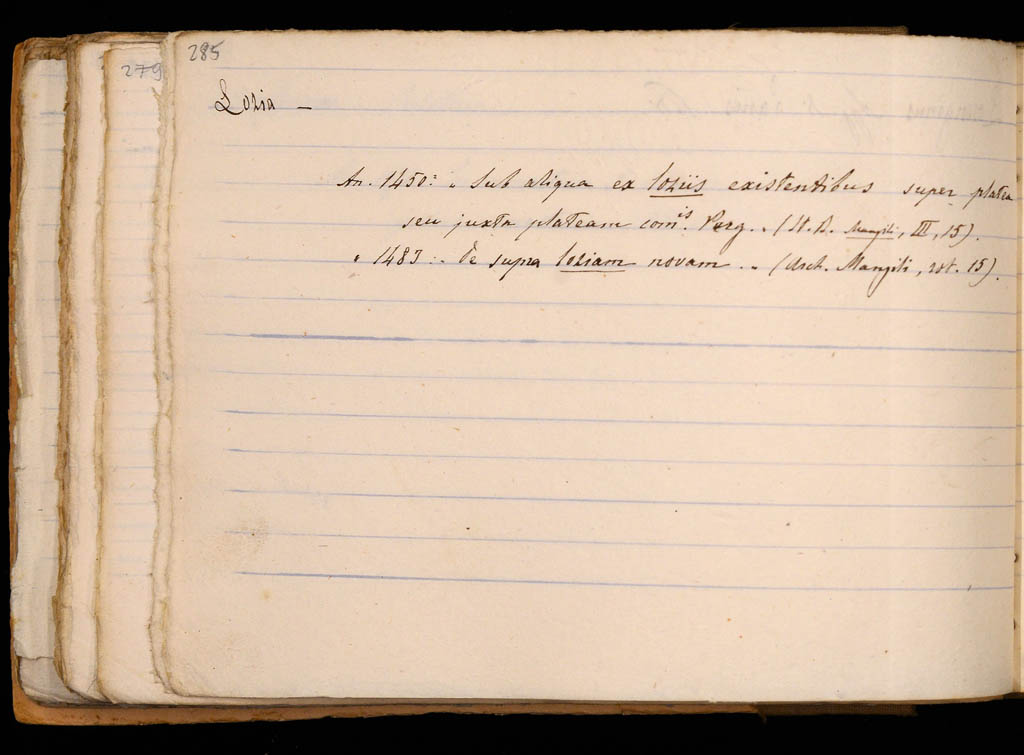 285
279
Lozia —
An. 1450: „ Sub aliqua ex loziis existentibus super platea
seu juxta plateam com.is Perg. „ (St. A. Mangili, III, 15).
„ 1483: „ De supra loziam novam „ (Arch. Mangili, rot. 15).